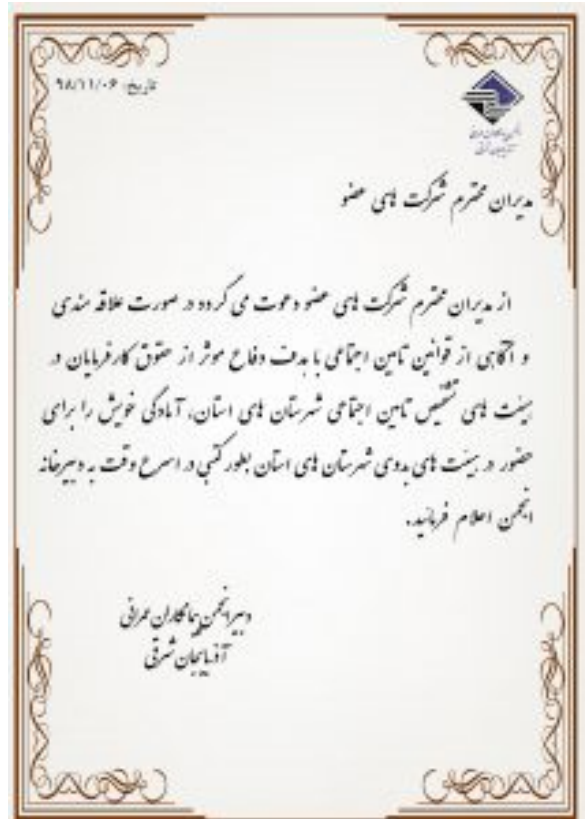 تاریخ: ۹۸/۱۱/۰۶
انجمن پیمانکاران عمرانی
آذربایجان شرقی
مدیران محترم شرکت های عضو
از مدیران محترم شرکت های عضو دعوت می گردد در صورت علاقه مندی
و آگاهی از قوانین تامین اجتماعی با هدف دفاع موثر از حقوق کارفرمایان در
هیئت های تشخیص تامین اجتماعی شهرستان های استان، آمادگی خویش را برای
حضور در هیئت های بدوی شهرستان های استان بطور کتبی در اسرع وقت به دبیرخانه
انجمن اعلام فرمائید.
دبیر انجمن پیمانکاران عمرانی
آذربایجان شرقی